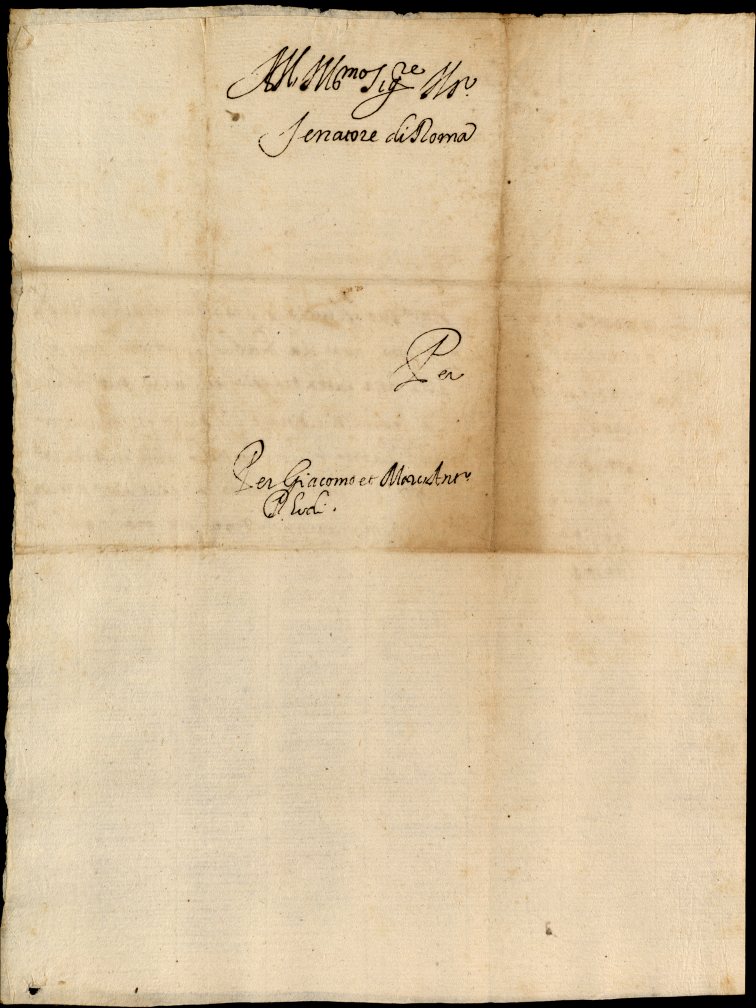 All Ill.mo Sig.re
Senatore di Roma
Per
Per Giacomo et Marc'Ant.o